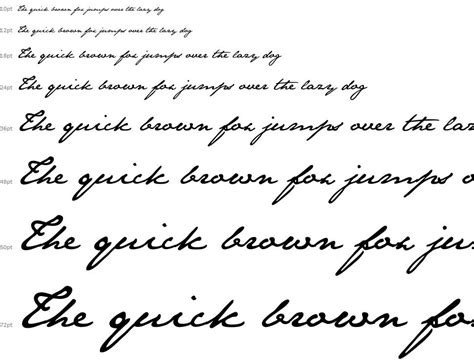 10pt The quick brown fox jumps over the lazy dog
12pt The quick brown fox jumps over the lazy dog
18pt The quick brown fox jumps over the lazy dog
24pt The quick brown fox jumps over the lazy dog
36pt The quick brown fox jumps over the laz
48pt The quick brown fox jumps o
60pt The quick brown fox ju
72pt The quick brown fo